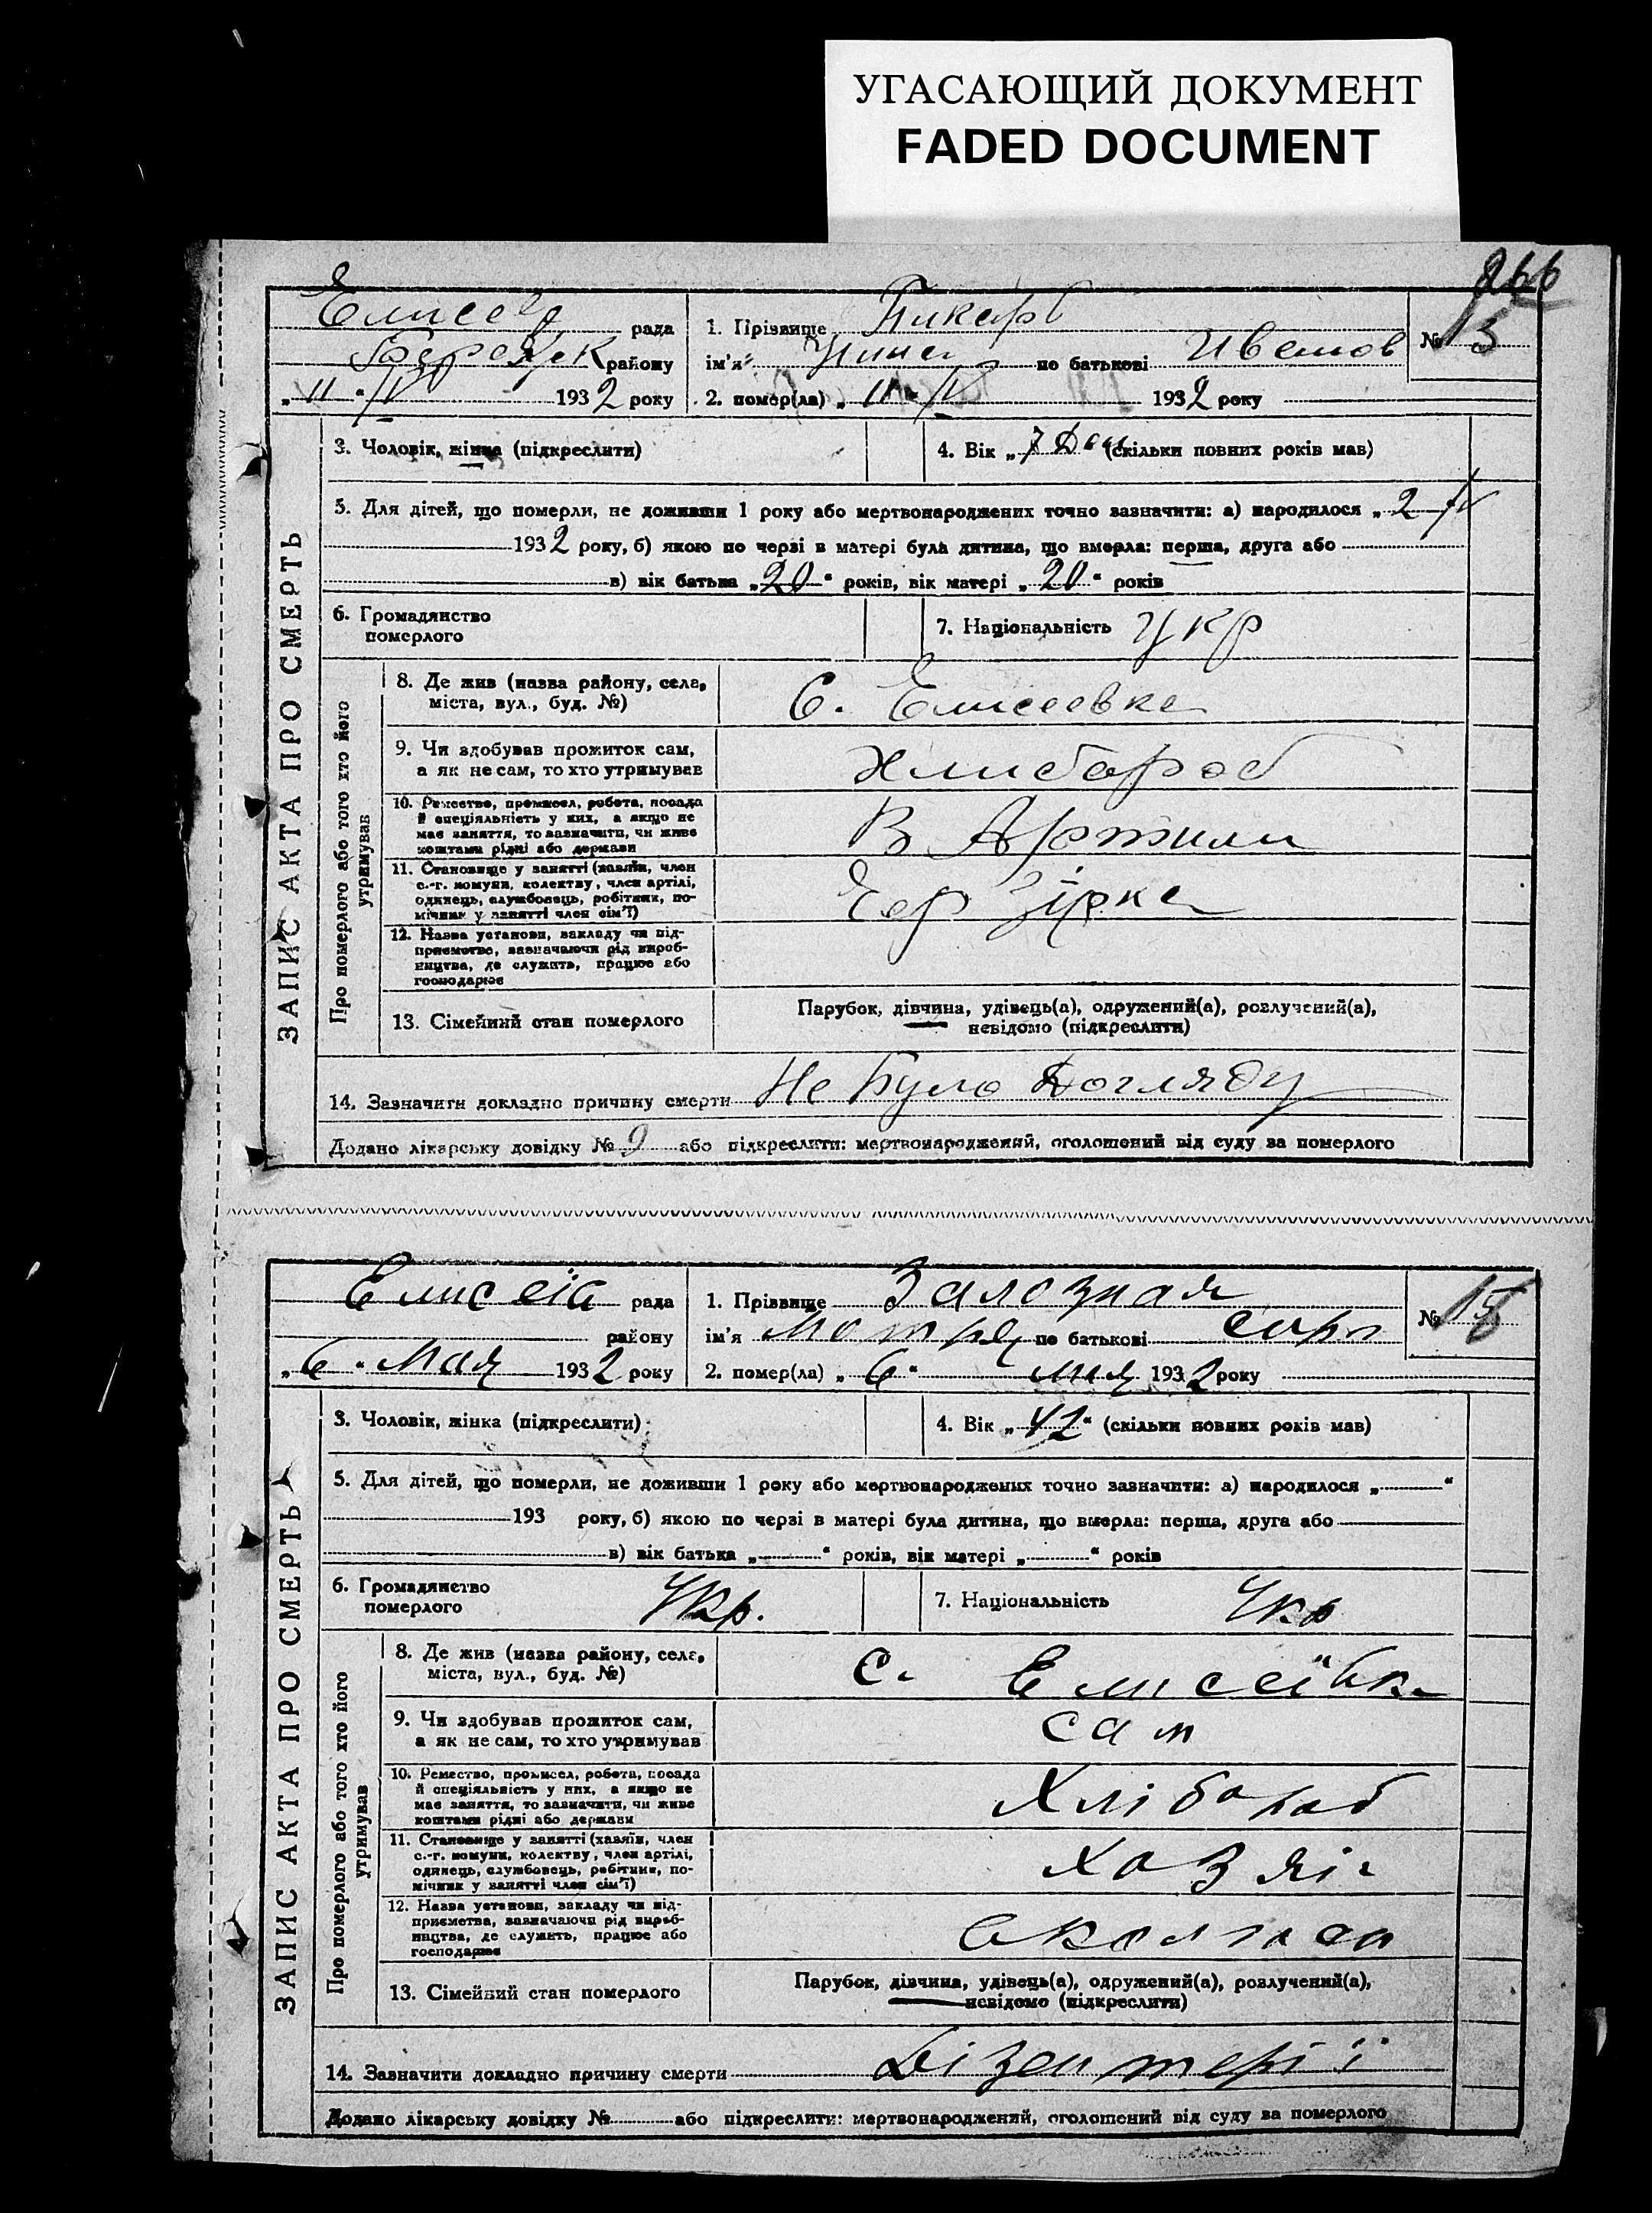 УГАСАЮЩИЙ ДОКУМЕНТ
FADED DOCUMENT
266
Елисеев рада
району
„11“ IV 1932 року
1. Прізвище
ім'я по батькові Иванов
№ 13
2. помер(ла) „11“ IV 1932 року
ЗАПИС АКТА ПРО СМЕРТЬ
3. Чоловік, жінка (підкреслити)
4. Вік „7 Дней“ (скільки повних років мав)
5. Для дітей, що померли, не доживши 1 року або мертвонароджених точно зазначити: а) народилося „2 IV
1932 року, б) якою по черзі в матері була дитина, що вмерла: перша, друга або
в) вік батька „20“ років, вік матері „20“ років
6. Громадянство
померлого
7. Національність Укр
Про померлого або того хто його
утримував
8. Де жив (назва району, села,
міста, вул., буд. №)
С. Елисеевка
9. Чи здобував прожиток сам,
а як не сам, то хто утримував
Хлибороб
10. Ремество, промисел, робота, посада
й спеціяльність у них, а якщо не
має заняття, то зазначити, чи живе
коштами рідні або держави
В Артили
11. Становище у занятті (хазяїн, член
с.-г. комуни, колектву, член артілі,
одинець, службовець, робітник, по-
мічник у занятті член сім'ї)
Зірка
12. Назва установи, закладу чи під-
приємства, зазначаючи рід вироб-
ництва, де служить, працює або
господарює
13. Сімейний стан померлого
Парубок, дівчина, удівець(а), одружений(а), розлучений(а),
невідомо (підкреслити)
14. Зазначити докладно причину смерти Не було догляду
Додано лікарську довідку № або підкреслити: мертвонароджений, оголошений від суду за померлого
рада
району
„6“ Мая 1932 року
1. Прізвище Залозная
ім'я Мотря по батькові
№
2. помер(ла) „6“ мая 1932 року
ЗАПИС АКТА ПРО СМЕРТЬ
3. Чоловік, жінка (підкреслити)
4. Вік „42“ (скільки повних років мав)
5. Для дітей, що померли, не доживши 1 року або мертвонароджених точно зазначити: а) народилося „ “
193 року, б) якою по черзі в матері була дитина, що вмерла: перша, друга або
в) вік батька „ “ років, вік матері „ “ років
6. Громадянство
померлого
Укр.
7. Національність Укр
Про померлого або того хто його
утримував
8. Де жив (назва району, села,
міста, вул., буд. №)
С. Елисеївка
9. Чи здобував прожиток сам,
а як не сам, то хто утримував
сам
10. Ремество, промисел, робота, посада
й спеціяльність у них, а якщо не
має заняття, то зазначити, чи живе
коштами рідні або держави
Хлібороб
11. Становище у занятті (хазяїн, член
с.-г. комуни, колектву, член артілі,
одинець, службовець, робітник, по-
мічник у занятті член сім'ї)
Хазяін
12. Назва установи, закладу чи під-
приємства, зазначаючи рід вироб-
ництва, де служить, працює або
господарює
13. Сімейний стан померлого
Парубок, дівчина, удівець(а), одружений(а), розлучений(а),
невідомо (підкреслити)
14. Зазначити докладно причину смерти Дізентерії
Додано лікарську довідку № або підкреслити: мертвонароджений, оголошений від суду за померлого